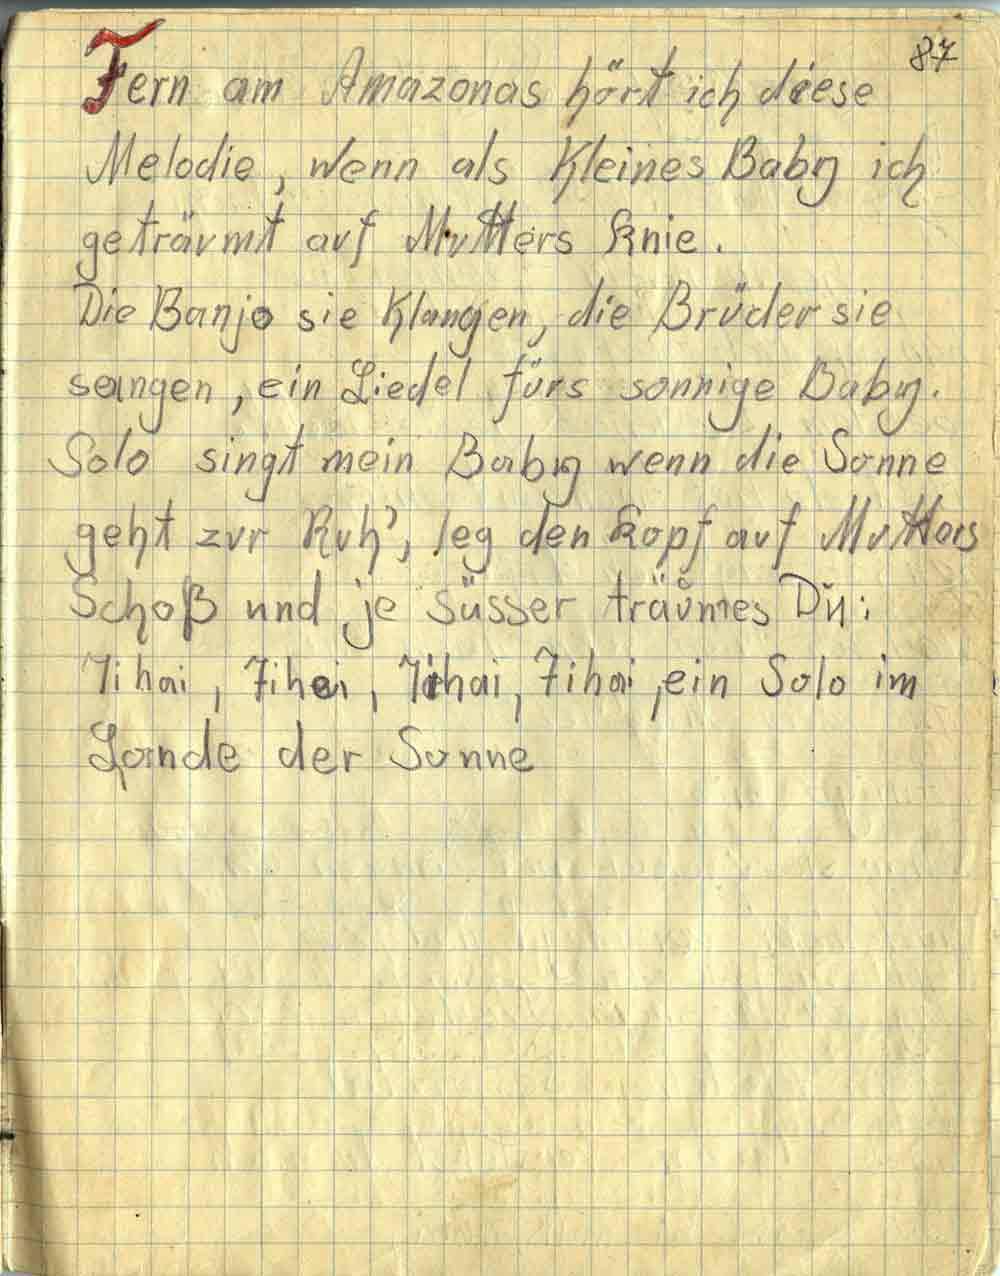 87
Fern am Amazonas hört ich diese
Melodie, wenn als Kleines Baby ich
geträumt auf Mutters Knie.
Die Banjo sie Klangen, die Brüder sie
sangen, ein Liedel fürs sonnige Baby.
Solo singt mein Baby wenn die Sonne
geht zur Ruh', leg den Kopf auf Mutters
Schoß und je süsser träumes Du:
Jihai, Jihai, Jihai, Jihai, ein Solo im
Lande der Sonne